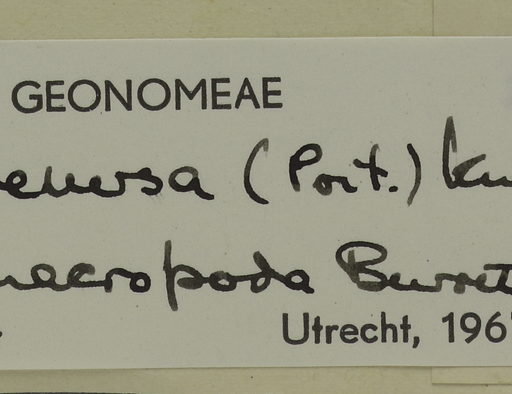 GEONOMEAE
(Poit.) Ku
macropoda Burret
Utrecht, 196